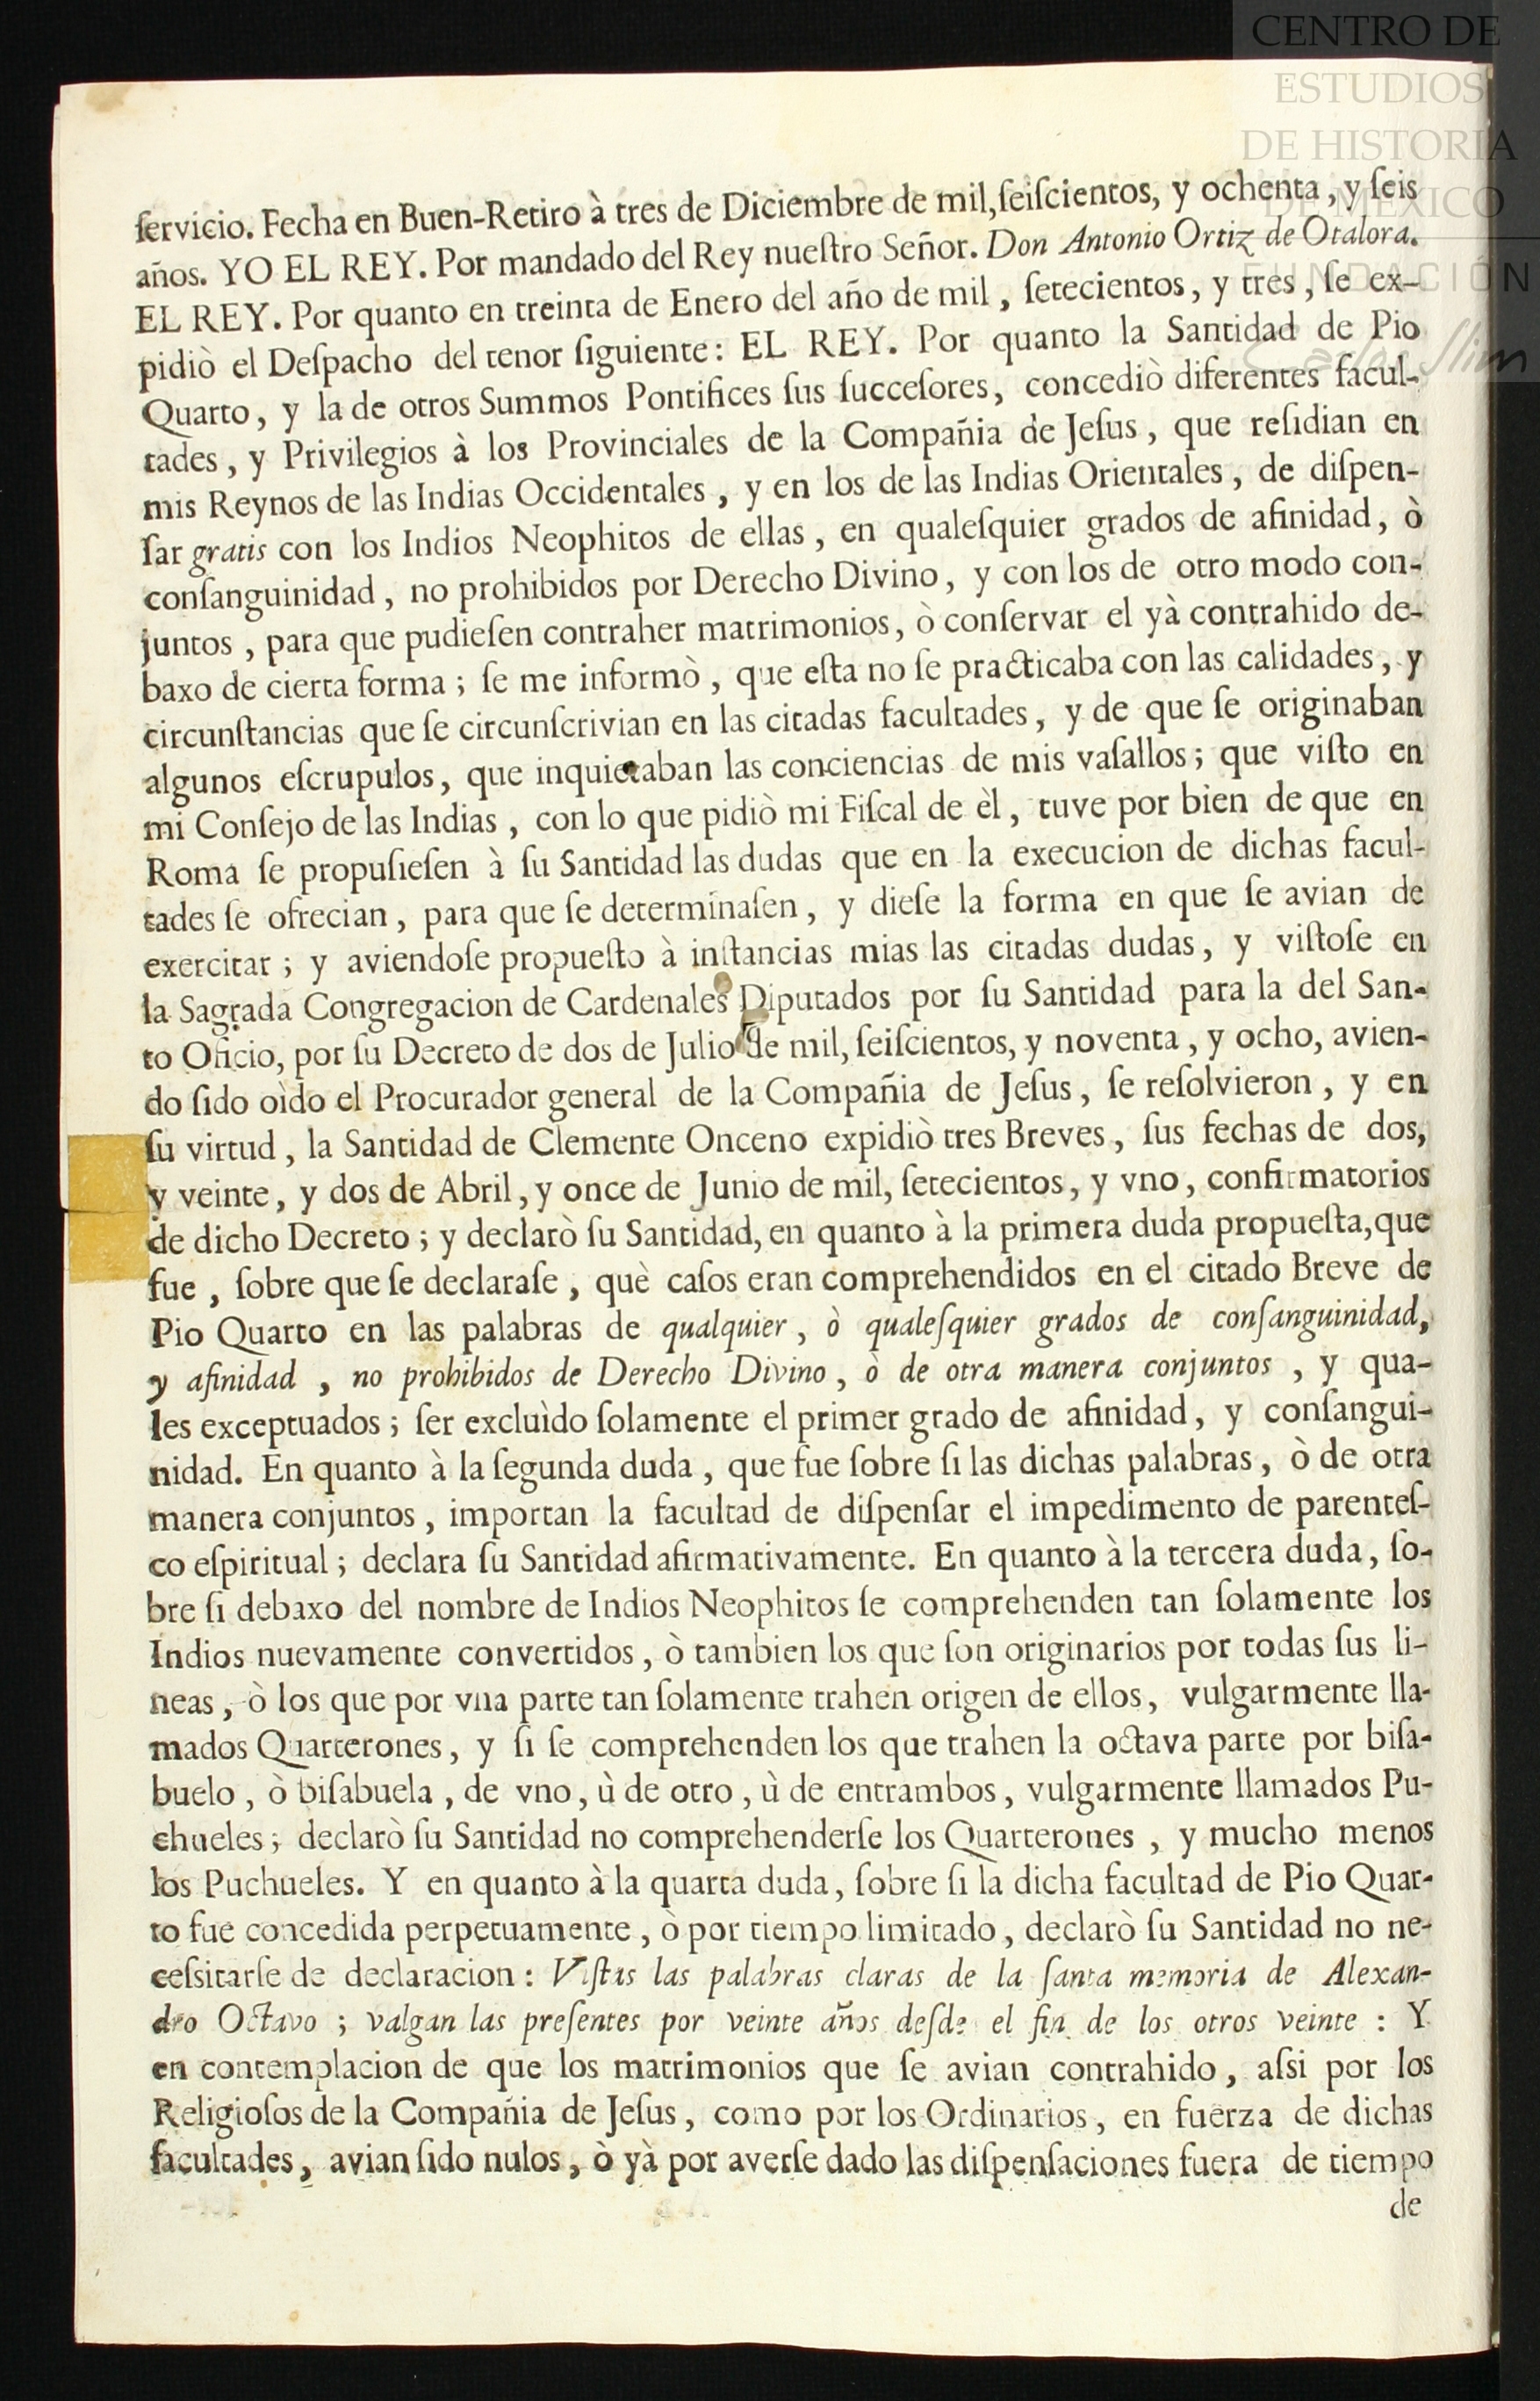 CENTRO DE
ESTUDIOS
DE HISTORIA
DE MEXICO
FUNDACIÓN
Carlos Slim
ſervicio. Fecha en Buen-Retiro à tres de Diciembre de mil, ſeiſcientos, y ochenta, y ſeis
años. YO EL REY. Por mandado del Rey nueſtro Señor. Don Antonio Ortiz de Otalora.
EL REY. Por quanto en treinta de Enero del año de mil, ſetecientos, y tres, ſe ex-
pidiò el Deſpacho del tenor ſiguiente: EL REY. Por quanto la Santidad de Pio
Quarto, y la de otros Summos Pontifices ſus ſucceſores, concediò diferentes facul-
tades, y Privilegios à los Provinciales de la Compañia de Jeſus, que reſidian en
mis Reynos de las Indias Occidentales, y en los de las Indias Orientales, de diſpen-
ſar gratis con los Indios Neophitos de ellas, en qualeſquier grados de afinidad, ò
conſanguinidad, no prohibidos por Derecho Divino, y con los de otro modo con-
juntos, para que pudieſen contraher matrimonios, ò conſervar el yà contrahido de-
baxo de cierta forma; ſe me informò, que eſta no ſe practicaba con las calidades, y
circunſtancias que ſe circunſcrivian en las citadas facultades, y de que ſe originaban
algunos eſcrupulos, que inquietaban las conciencias de mis vaſallos; que viſto en
mi Conſejo de las Indias, con lo que pidiò mi Fiſcal de èl, tuve por bien de que en
Roma ſe propuſieſen à ſu Santidad las dudas que en la execucion de dichas facul-
tades ſe ofrecian, para que ſe determinaſen, y dieſe la forma en que ſe avian de
exercitar; y aviendoſe propueſto à inſtancias mias las citadas dudas, y viſtoſe en
la Sagrada Congregacion de Cardenales Diputados por ſu Santidad para la del San-
to Oficio, por ſu Decreto de dos de Julio de mil, ſeiſcientos, y noventa, y ocho, avien-
do ſido oìdo el Procurador general de la Compañia de Jeſus, ſe reſolvieron, y en
ſu virtud, la Santidad de Clemente Onceno expidiò tres Breves, ſus fechas de dos,
y veinte, y dos de Abril, y once de Junio de mil, ſetecientos, y vno, confirmatorios
de dicho Decreto; y declarò ſu Santidad, en quanto à la primera duda propueſta, que
fue, ſobre que ſe declaraſe, què caſos eran comprehendidos en el citado Breve de
Pio Quarto en las palabras de qualquier, ò qualeſquier grados de conſanguinidad,
y afinidad, no prohibidos de Derecho Divino, ò de otra manera conjuntos, y qua-
les exceptuados; ſer excluìdo ſolamente el primer grado de afinidad, y conſangui-
nidad. En quanto à la ſegunda duda, que fue ſobre ſi las dichas palabras, ò de otra
manera conjuntos, importan la facultad de diſpenſar el impedimento de parenteſ-
co eſpiritual; declara ſu Santidad afirmativamente. En quanto à la tercera duda, ſo-
bre ſi debaxo del nombre de Indios Neophitos ſe comprehenden tan ſolamente los
Indios nuevamente convertidos, ò tambien los que ſon originarios por todas ſus li-
neas, ò los que por vna parte tan ſolamente trahen origen de ellos, vulgarmente lla-
mados Quarterones, y ſi ſe comprehenden los que trahen la octava parte por biſa-
buelo, ò biſabuela, de vno, ù de otro, ù de entrambos, vulgarmente llamados Pu-
chueles; declarò ſu Santidad no comprehenderſe los Quarterones, y mucho menos
los Puchueles. Y en quanto à la quarta duda, ſobre ſi la dicha facultad de Pio Quar-
to fue concedida perpetuamente, ò por tiempo limitado, declarò ſu Santidad no ne-
ceſsitarſe de declaracion: Viſtas las palabras claras de la ſanta memoria de Alexan-
dro Octavo; valgan las preſentes por veinte años deſde el fin de los otros veinte: Y
en contemplacion de que los matrimonios que ſe avian contrahido, aſsi por los
Religioſos de la Compañia de Jeſus, como por los Ordinarios, en fuerza de dichas
facultades, avian ſido nulos, ò yà por averſe dado las diſpenſaciones fuera de tiempo
de